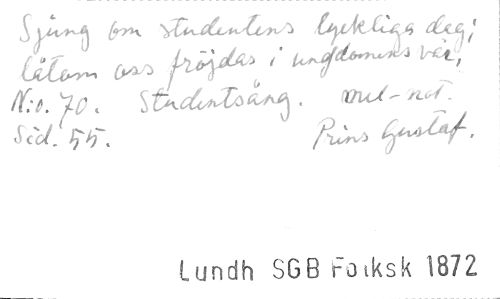 Sjung om studentens lyckliga dag;
låtom oss fröjdas i ungdomens vår,
N:o. 70. Studentsång. mel-not.
Sid. 55. Prins Gustaf.
Lundh SGB Folksk 1872